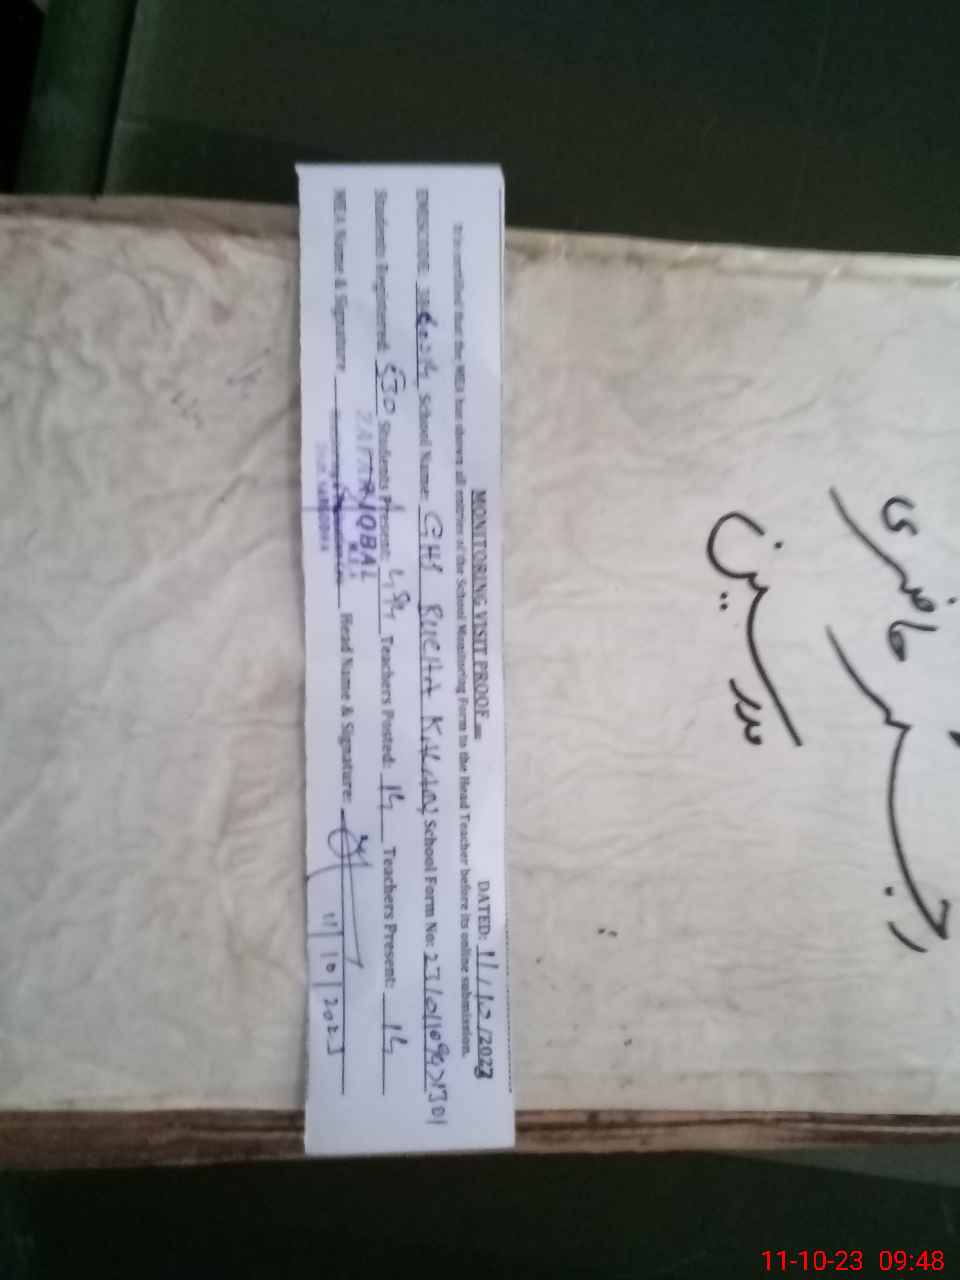 MONITORING VISIT PROOF
DATED: 11/10/2023
It is certified that the MEA has shown all entries of the School Monitoring Form to the Head Teacher before its online submission.
EMISCODE School Name: GHS School Form No:
Students Registered: Students Present: Teachers Posted: 14 Teachers Present: 14
ZAFAR IQBAL
M.E.A
MEA Name & Signature Head Name & Signature:
11/10/2023
SARGODHA
رجسٹر حاضری
مدرسین
11-10-23 09:48